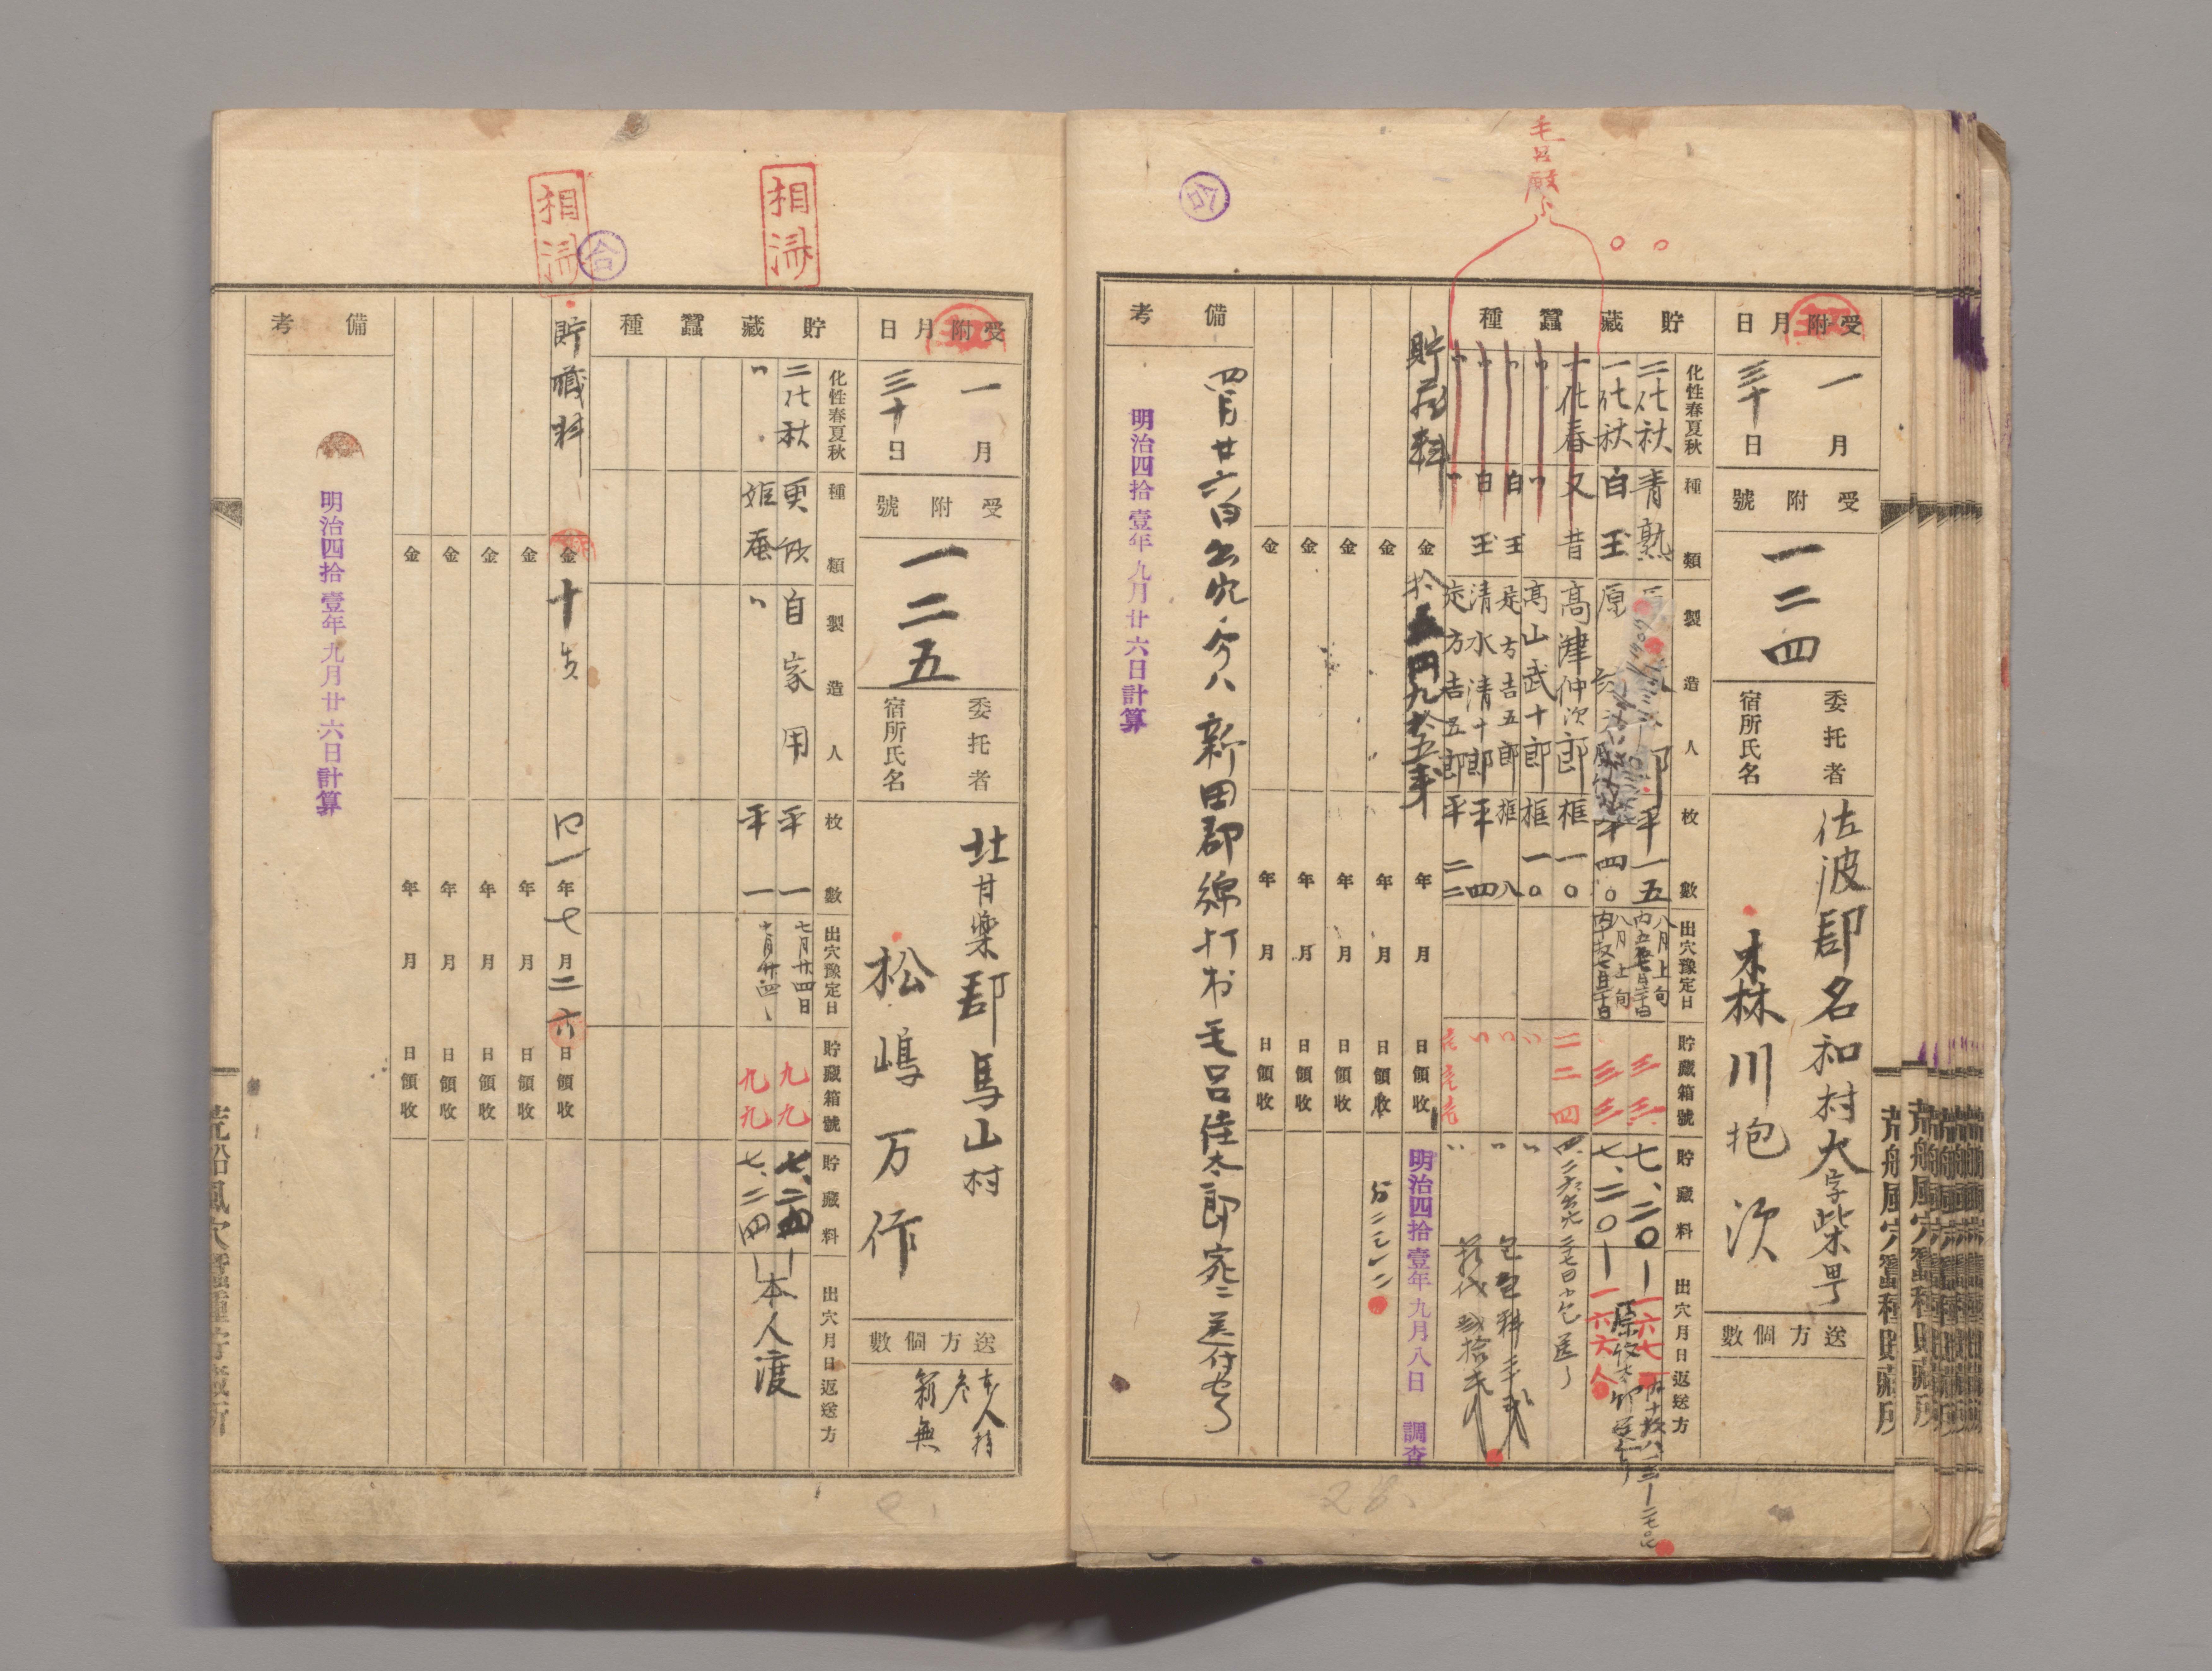 毛呂殿分
合
受附月日
一月
三十日
受附號
一二四
委托者
宿所氏名
佐波郡名和村大字柴
木林川抱次
送方個數
貯藏蠶種
化性春夏秋
種類
製造人
枚數
出穴豫定日
貯藏箱號
貯藏料
出穴月日返送方
二化秋 青熟 平一五 八月上旬 三三 七、二〇
一化秋 白玉 原 平四〇 八月上旬 三三 七、二〇
一化春 又昔 高津仲次郎 框一〇 二二四
〃 〃 高山武十郎 框一〇 〃 〃
〃 白玉 是方吉五郎 框八 〃 〃
〃 白玉 清水清十郎 平四 〃
〃 〃 是方吉五郎 平二二
貯藏料 金 年 月 日領收
明治四拾壹年九月八日 調査
金 年 月 日領收
金 年 月 日領收
金 年 月 日領收
金 年 月 日領收
備考
四月廿六日出穴
新田郡綿打村毛呂佳太郎宛ニ送付セリ
明治四拾壹年九月廿六日計算
28
荒船風穴蠶種貯藏所
相済
相済
合
受附月日
一月
三十日
受附號
一二五
委托者
宿所氏名
北甘楽郡馬山村
松嶋万作
送方個數
本人持参
箱無
貯藏蠶種
化性春夏秋
種類
製造人
枚數
出穴豫定日
貯藏箱號
貯藏料
出穴月日返送方
二化秋 更級 自家用 平一 七月廿四日 九九 七、二四 本人渡
〃 姫蚕 〃 平一 九九 七、二四
貯蔵料 金十 四一年七月二六日領收
金 年 月 日領收
金 年 月 日領收
金 年 月 日領收
金 年 月 日領收
備考
明治四拾壹年九月廿六日計算
荒船風穴蠶種貯藏所